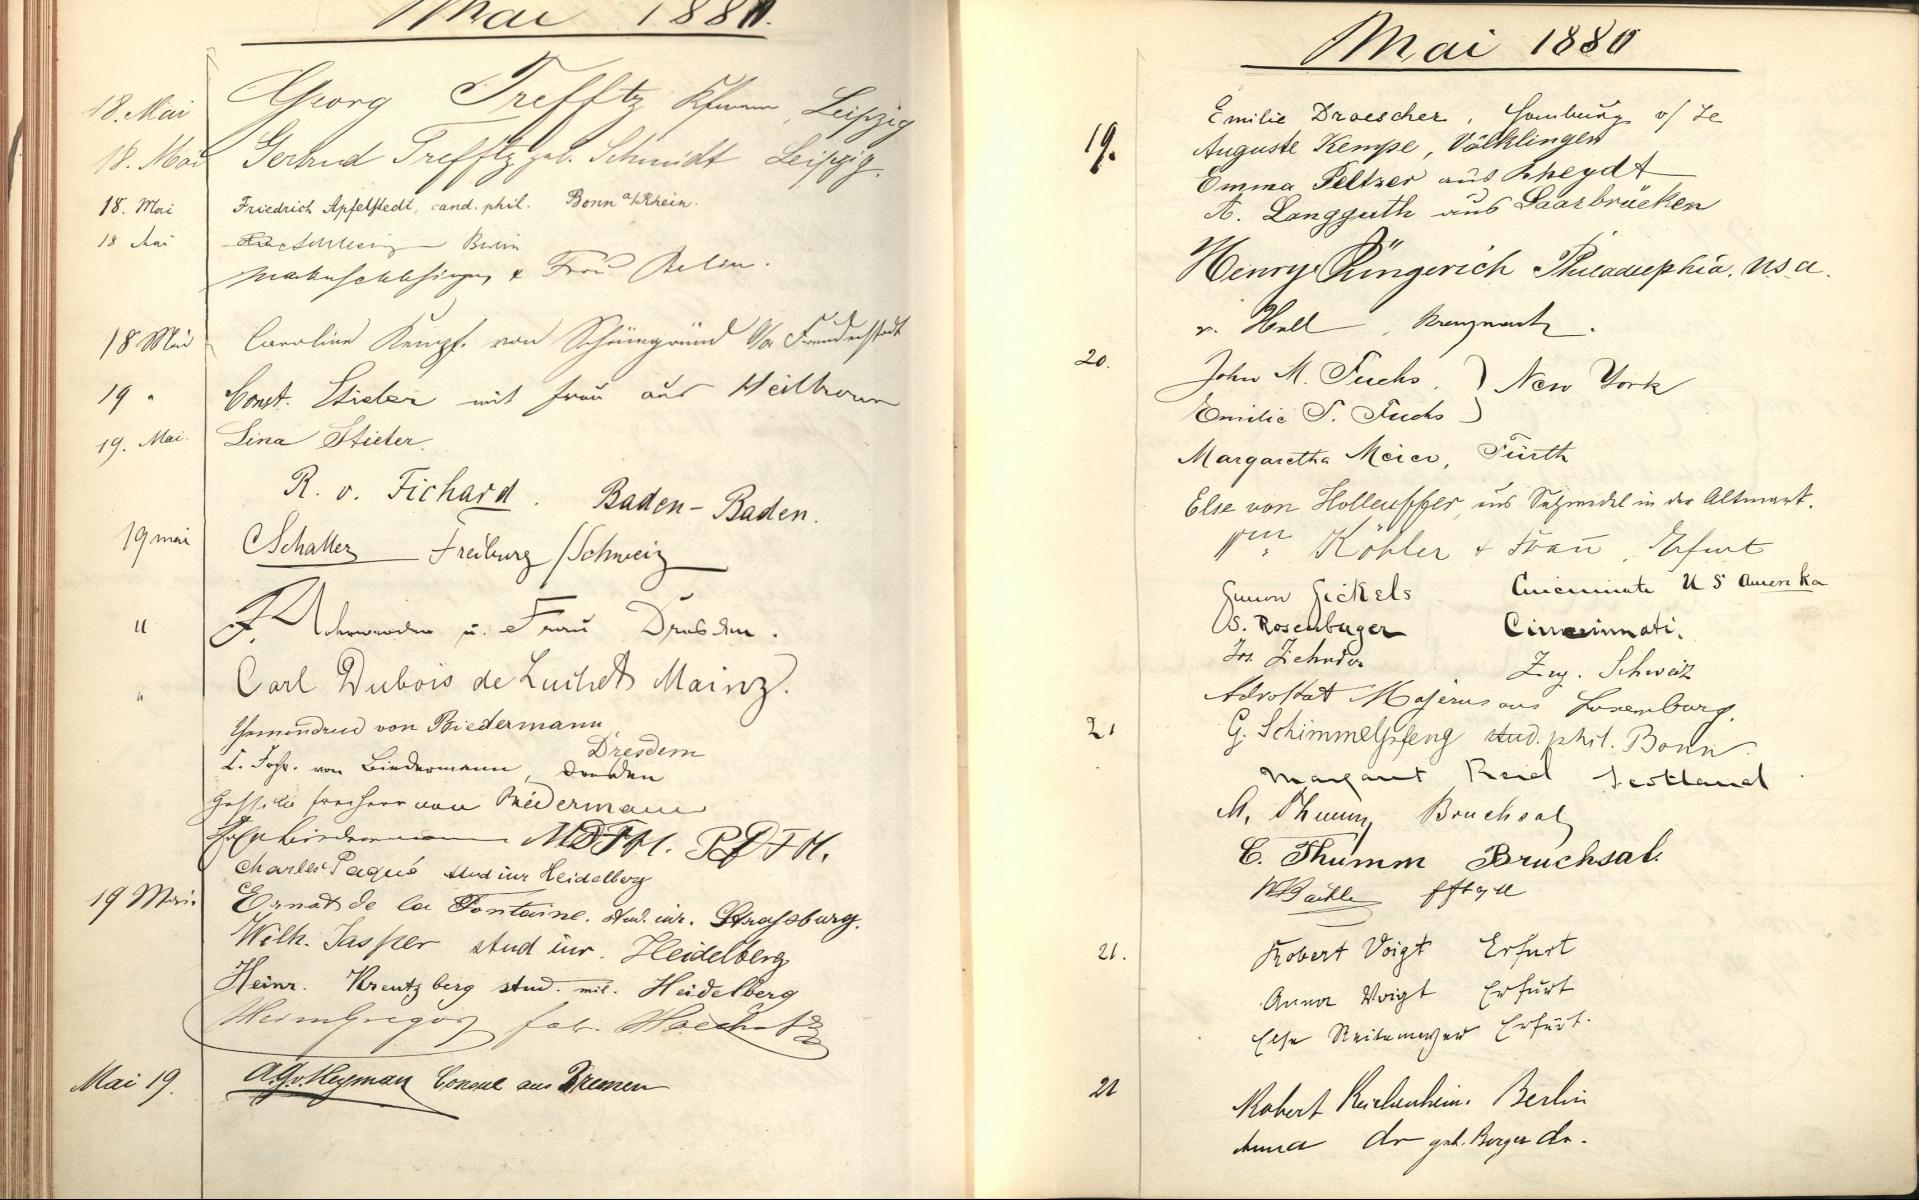 Mai 1880.
18. Mai Georg Trefftz Kfmann, Leipzig
18. Mai Gertrud Trefftz geb. Schmidt Leipzig.
18. Mai Friedrich Apfelstedt, cand. phil. Bonn a/Rhein.
18 Mai Berlin
& Frau Berlin.
18 Mai Caroline Kempf. von Schöngründ O/a Freudenstadt
19 " Const. Stieler mit Frau aus Heilbronn
19. Mai. Lina Stieler.
R. v. Fichard. Baden-Baden.
19 mai Schaller Freiburg /Schweiz
" F. u. Frau Dresden.
" Carl Dubois de Luchet Mainz.
von Biedermann
Dresden
von Biedermann, Dresden
Freiherr von Biedermann
MDFH. PDFH.
Charles Paqué stud iur Heidelberg
19 Mai. Ernst de la Fontaine. stud. iur. Strassburg.
Wilh. Jasper stud iur. Heidelberg
Heinr. Kreutzberg stud. mil. Heidelberg
Mai 19. Consul aus Bremen
Mai 1880
Emilie Draescher, Homburg v/
19. Auguste Kempe, Völklingen
Emma Peltzer aus Rheydt
A. Langguth aus Saarbrücken
Henry Güngerich Philadelphia. U.S.A.
v. Hell, Kreuznach.
20. John M. Fuchs. } New York
Emilie S. Fuchs
Margaretha Meier, Fürth
Else von Holleuffer, aus Salzwedel in der Altmark.
Wm Köhler & Frau, Erfurt
Simon Gickels Cincinnati U S Amerika
S. Rosenberger Cincinnati.
Jos. Zehnder Zug. Schweiz
Advokat Majerus aus Luxemburg.
21 G. Schimmelpfeng stud. phil. Bonn.
Margaret Reid Scotland
M. Thumm Bruchsal
C. Thumm Bruchsal.
21. Robert Voigt Erfurt
Anna Voigt Erfurt
Else Erfurt.
21 Robert Reichenheim. Berlin
Anna do geb. Berger do.